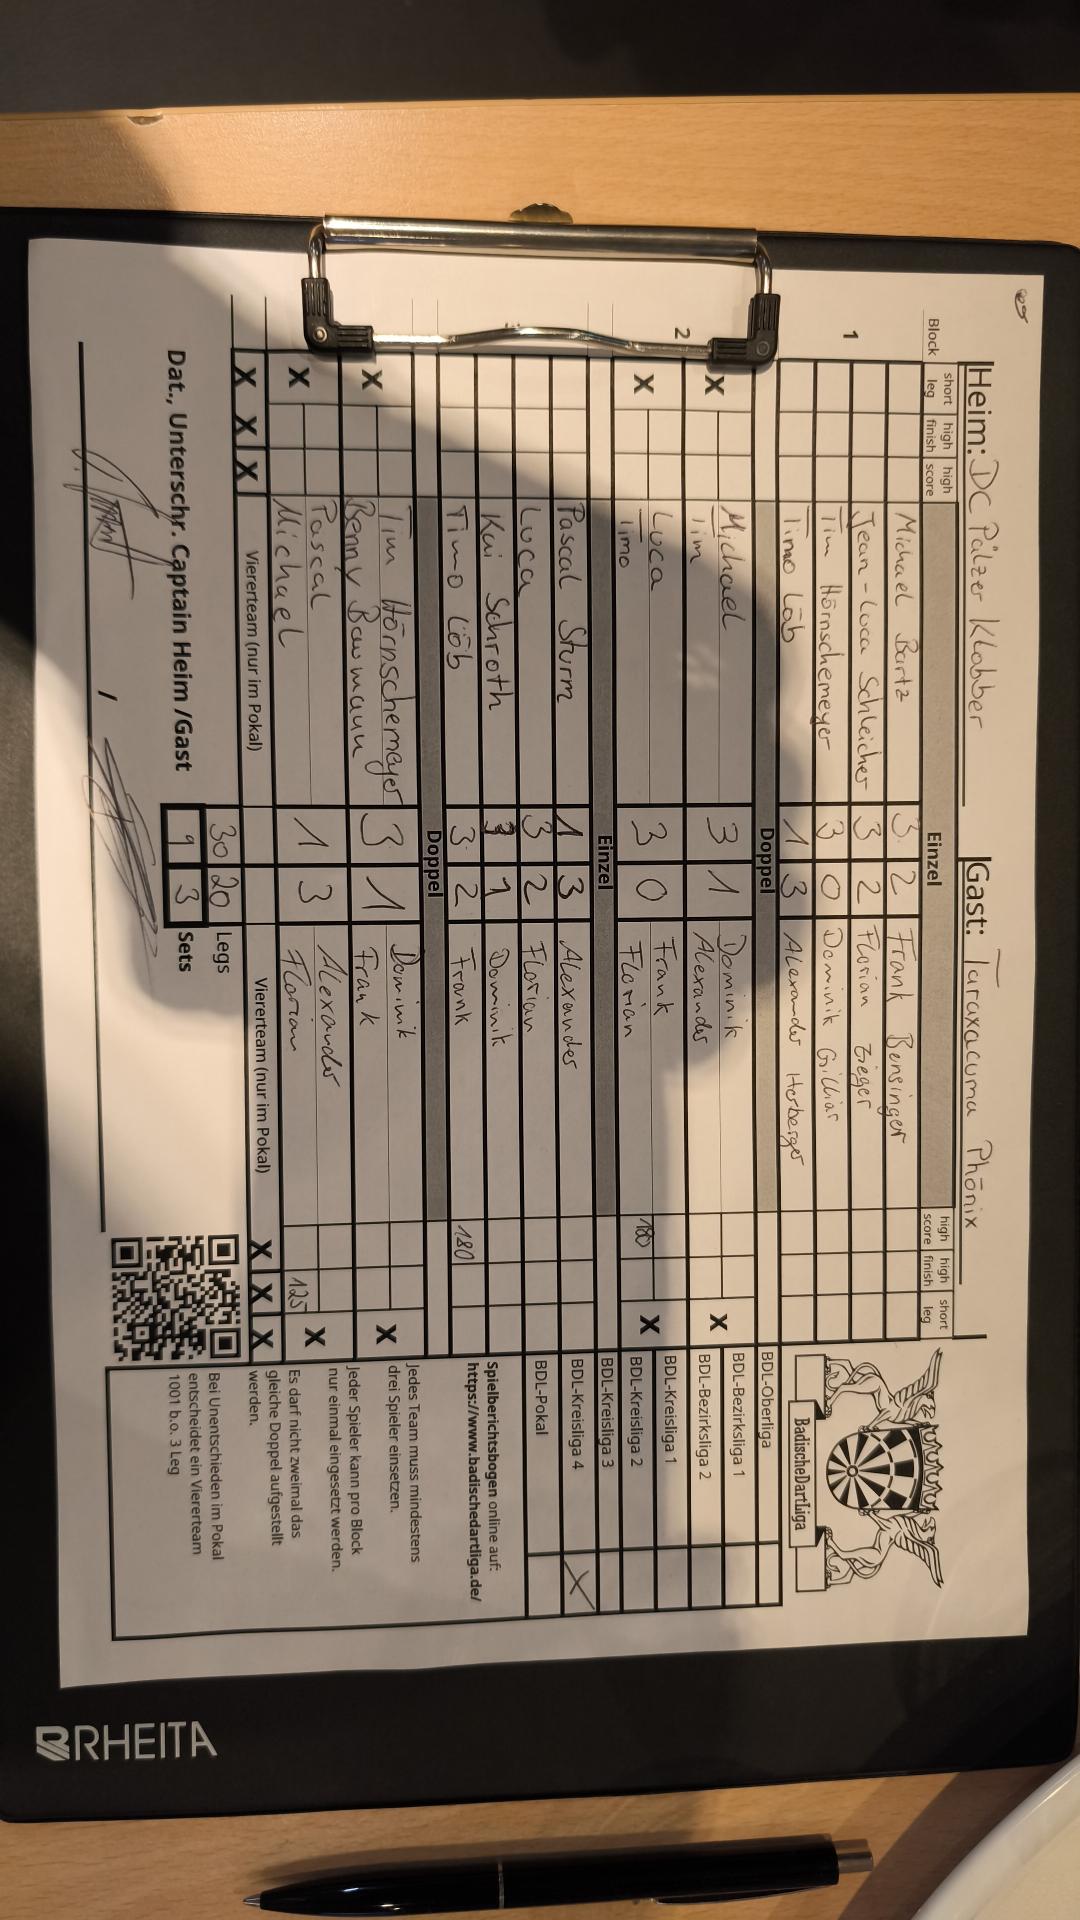 Heim: DC Pälzer Klobber Gast: Taraxacuma Phönix
Block short leg high finish high score Einzel high score high finish short leg
1
Michael Bartz 3 2 Frank Bensinger
Jean-Luca Schleicher 3 2 Florian Zieger
Tim Hörnschemeyer 3 0 Dominik Gilliar
Timo Löb 1 3 Alexander Herberger
Doppel
X Michael 3 1 Dominik X
Tim Alexander
2
X Luca 3 0 Frank X
Timo Florian 180
Einzel
Pascal Sturm 1 3 Alexander
Luca 3 2 Florian
Kai Schroth 3 1 Dominik
Timo Löb 3 2 Frank 180
Doppel
X Tim Hörnschemeyer 3 1 Dominik X
Benny Baumann Frank
X Pascal 1 3 Alexander X
Michael Florian 125
X X X Viererteam (nur im Pokal) Viererteam (nur im Pokal) X X X
30 20 Legs
Dat., Unterschr. Captain Heim /Gast 9 3 Sets
/
BadischeDartLiga
BDL-Oberliga
BDL-Bezirksliga 1
BDL-Bezirksliga 2
BDL-Kreisliga 1
BDL-Kreisliga 2
BDL-Kreisliga 3
BDL-Kreisliga 4 X
BDL-Pokal
Spielberichtsbogen online auf:
https://www.badischedartliga.de/
Jedes Team muss mindestens
drei Spieler einsetzen.
Jeder Spieler kann pro Block
nur einmal eingesetzt werden.
Es darf nicht zweimal das
gleiche Doppel aufgestellt
werden.
Bei Unentschieden im Pokal
entscheidet ein Viererteam
1001 b.o. 3 Leg
RHEITA